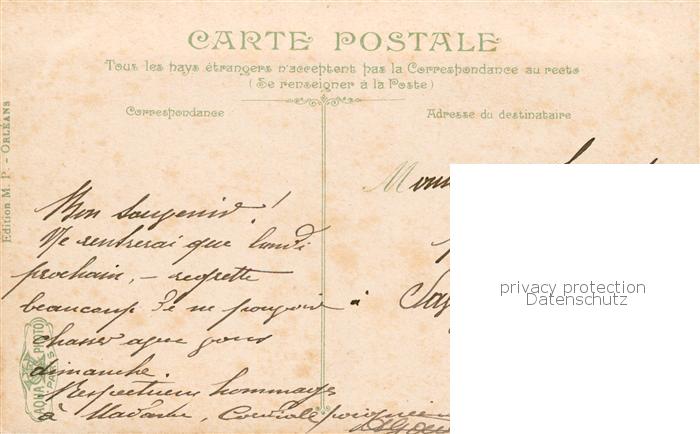 CARTE POSTALE
Tous les pays étrangers n'acceptent pas la Correspondance au recto
(Se renseigner à la Poste)
Correspondance
Adresse du destinataire
Edition M. P. - ORLÉANS
Bon souvenir!
Ne rentrerai que lundi
prochain, - regrette
beaucoup de ne pouvoir
chasser avec vous
dimanche.
Respectueux hommages
à Madame, Cordiale poignée
à
AQUA PHOTO
PARIS
privacy protection
Datenschutz